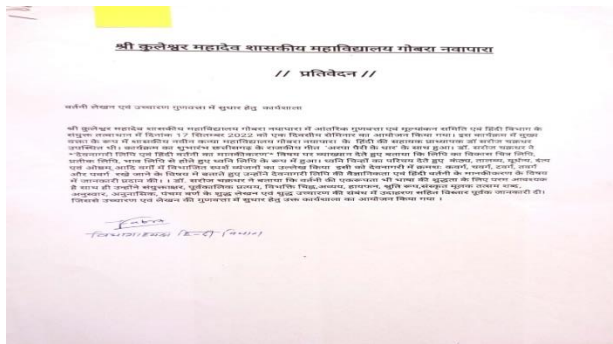 श्री कुलेश्वर महादेव शासकीय महाविद्यालय गोबरा नवापारा
// प्रतिवेदन //
वर्तनी लेखन एवं उच्चारण गुणवत्ता में सुधार हेतु कार्यशाला
श्री कुलेश्वर महादेव शासकीय महाविद्यालय गोबरा नवापारा में आंतरिक गुणवत्ता एवं मूल्यांकन समिति एवं हिंदी विभाग के
संयुक्त तत्वाधान में दिनांक 17 सितम्बर 2022 को एक दिवसीय सेमिनार का आयोजन किया गया। इस कार्यक्रम में मुख्य
वक्ता के रूप में शासकीय नवीन कन्या महाविद्यालय गोबरा नवापारा के हिंदी की सहायक प्राध्यापक डॉ सरोज चक्रधर
उपस्थित थी। कार्यक्रम का शुभारंभ छत्तीसगढ़ के राजकीय गीत "अरपा पैरी के धार" के साथ हुआ। डॉ. सरोज चक्रधर ने
"देवनागरी लिपि एवं हिंदी वर्तनी का मानकीकरण" विषय पर व्याख्यान देते हुए बताया कि लिपि का विकास चित्र लिपि,
प्रतीक लिपि, भाव लिपि से होते हुए ध्वनि लिपि के रूप में हुआ। ध्वनि चिन्हों का परिचय देते हुए कंठ्य, तालव्य, मूर्धन्य, दंत्य
एवं ओष्ठ्य आदि वर्गों में विभाजित स्पर्श व्यंजनों का उल्लेख किया इसी को देवनागरी में क्रमशः कवर्ग, चवर्ग, टवर्ग, तवर्ग
और पवर्ग रखे जाने के विषय में बताते हुए उन्होंने देवनागरी लिपि की वैज्ञानिकता एवं हिंदी वर्तनी के मानकीकरण के विषय
में जानकारी प्रदान की। डॉ. सरोज चक्रधर ने बताया कि वर्तनी की एकरूपता भी भाषा की शुद्धता के लिए परम आवश्यक
है साथ ही उन्होंने संयुक्ताक्षर, पूर्वकालिक प्रत्यय, विभक्ति चिह्न, अव्यय, हायफन, श्रुति रूप, संस्कृत मूलक तत्सम शब्द,
अनुस्वार, अनुनासिक, पंचम वर्ण के शुद्ध लेखन एवं शुद्ध उच्चारण की संबंध में उदाहरण सहित विस्तार पूर्वक जानकारी दी।
जिससे उच्चारण एवं लेखन की गुणवत्ता में सुधार हेतु उक्त कार्यशाला का आयोजन किया गया ।
विभागाध्यक्ष हिन्दी विभाग